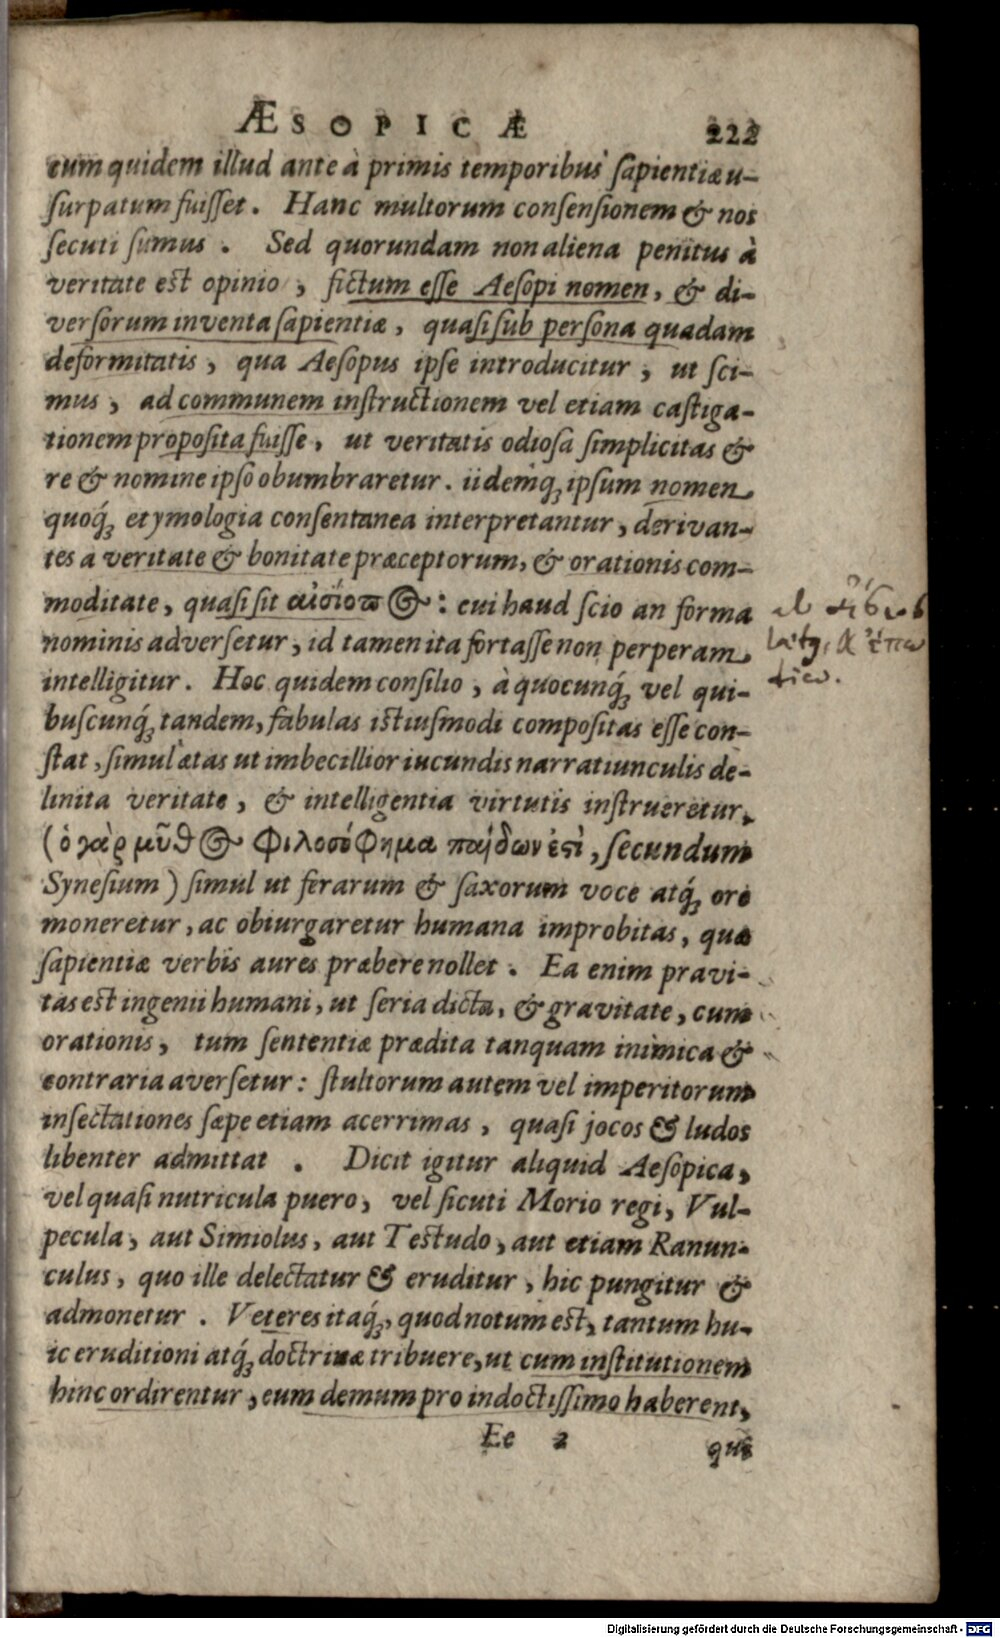 ÆSOPICÆ 222
cum quidem illud ante à primis temporibus sapientiæ u-
surpatum fuisset. Hanc multorum consensionem & nos
secuti sumus. Sed quorundam non aliena penitus à
veritate est opinio, fictum esse Aesopi nomen, & di-
versorum inventa sapientiæ, quasi sub persona quadam
deformitatis, qua Aesopus ipse introducitur, ut sci-
mus, ad communem instructionem vel etiam castiga-
tionem proposita fuisse, ut veritatis odiosa simplicitas &
re & nomine ipso obumbraretur. iidemq́ꝫ ipsum nomen
quoq́ꝫ etymologia consentanea interpretantur, derivan-
tes a veritate & bonitate præceptorum, & orationis com-
moditate, quasi sit αἰσίοπος: cui haud scio an forma
nominis adversetur, id tamen ita fortasse non perperam
intelligitur. Hoc quidem consilio, à quocunq́ꝫ vel qui-
buscunq́ꝫ tandem, fabulas istiusmodi compositas esse con-
stat, simul ætas ut imbecillior iucundis narratiunculis de-
linita veritate, & intelligentia virtutis instrueretur,
(ὁ γὰρ μῦθος φιλοσόφημα παίδων ἐστὶ, secundum
Synesium) simul ut ferarum & saxorum voce atq́ꝫ ore
moneretur, ac obiurgaretur humana improbitas, quæ
sapientiæ verbis aures præbere nollet. Ea enim pravi-
tas est ingenii humani, ut seria dicta, & gravitate, cum
orationis, tum sententiæ prædita tanquam inimica &
contraria aversetur: stultorum autem vel imperitorum
insectationes sæpe etiam acerrimas, quasi jocos & ludos
libenter admittat. Dicit igitur aliquid Aesopica,
vel quasi nutricula puero, vel sicuti Morio regi, Vul-
pecula, aut Simiolus, aut Testudo, aut etiam Ranun-
culus, quo ille delectatur & eruditur, hic pungitur &
admonetur. Veteres itaq́ꝫ, quod notum est, tantum hu-
ic eruditioni atq́ꝫ doctrinæ tribuere, ut cum institutionem
hinc ordirentur, eum demum pro indoctissimo haberent,
Ee 2 qui
Digitalisierung gefördert durch die Deutsche Forschungsgemeinschaft - DFG